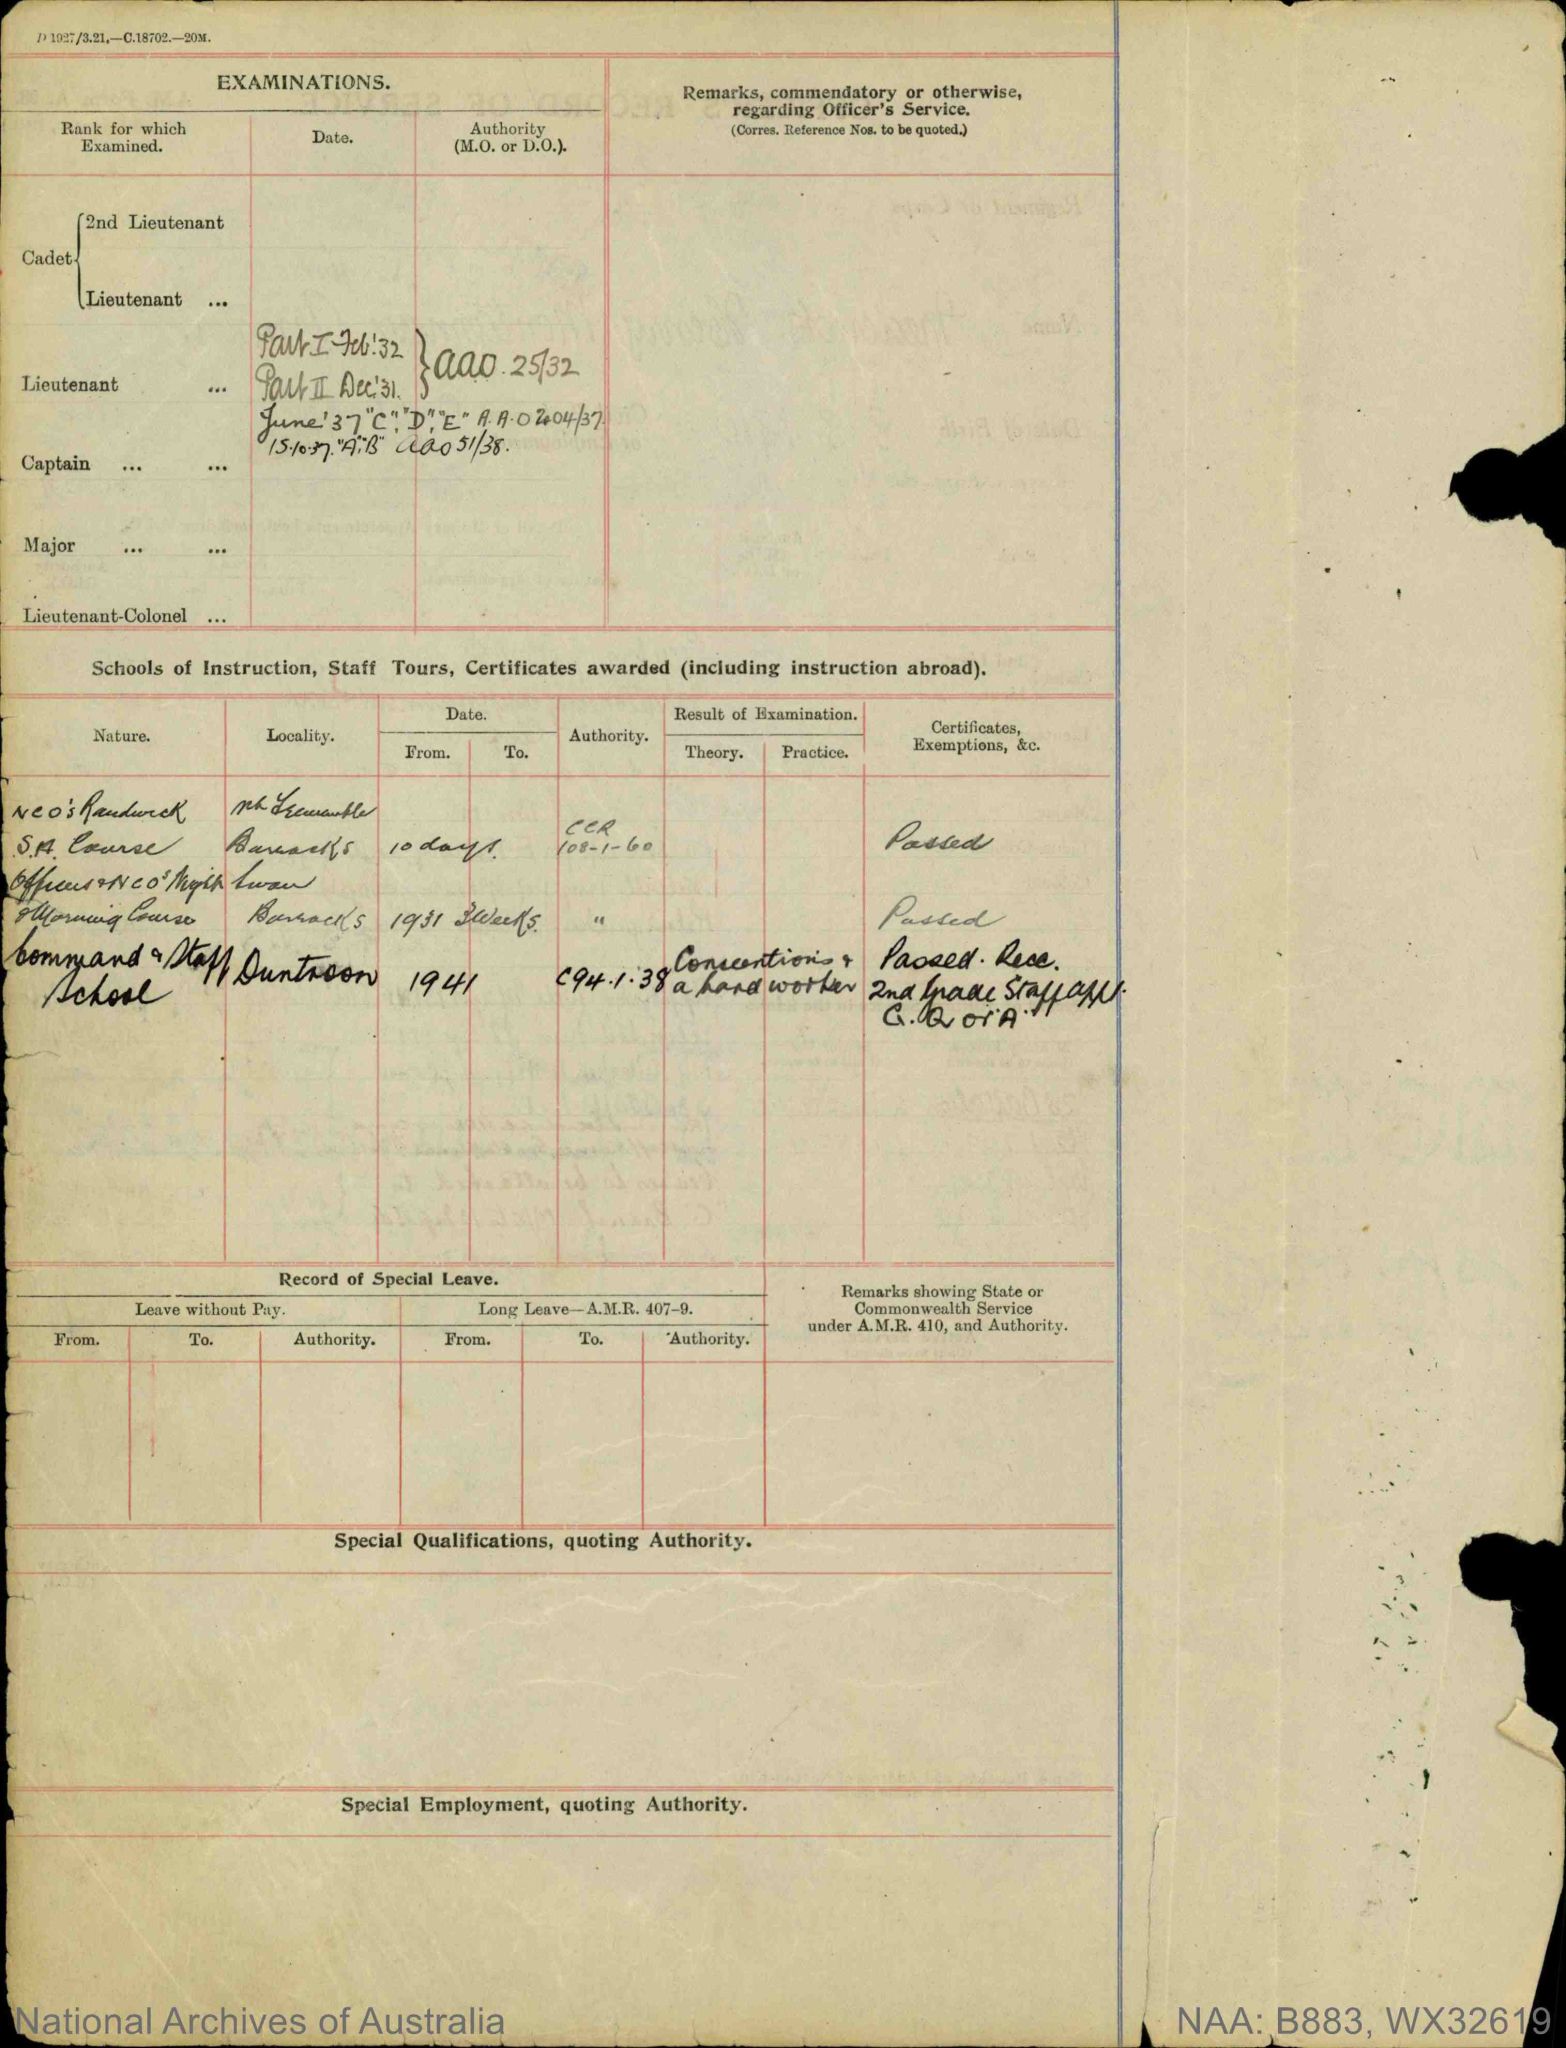 D 1927/3.21.—C.18702.—20M.
EXAMINATIONS.
Remarks, commendatory or otherwise,
regarding Officer's Service.
(Corres. Reference Nos. to be quoted.)
Rank for which
Examined.
Date.
Authority
(M.O. or D.O.).
Cadet
2nd Lieutenant
Lieutenant ...
Part I Feb. '32
Part II Dec. '31.
AAO. 25/32
Lieutenant ...
June '37 "C", "D", "E" A.A.O 204/37
15.10.37. "A", "B" AAO 51/38.
Captain ... ...
Major ... ...
Lieutenant-Colonel ...
Schools of Instruction, Staff Tours, Certificates awarded (including instruction abroad).
Nature.
Locality.
Date.
From.
To.
Authority.
Result of Examination.
Theory.
Practice.
Certificates,
Exemptions, &c.
NCO's Randwick Nth Fremantle
S.A. Course Barracks 10 days. CCR 108-1-60 Passed
Officers & NCO's Night Swan
& Morning Course Barracks 1931 3 Weeks. " Passed
Command & Staff School Duntroon 1941 C94.1.38
a hard worker
Passed. Recc.
2nd Grade Staff appt.
G. Q or A.
Record of Special Leave.
Leave without Pay.
Long Leave—A.M.R. 407-9.
Remarks showing State or
Commonwealth Service
under A.M.R. 410, and Authority.
From. To. Authority. From. To. Authority.
Special Qualifications, quoting Authority.
Special Employment, quoting Authority.
National Archives of Australia
NAA: B883, WX32619